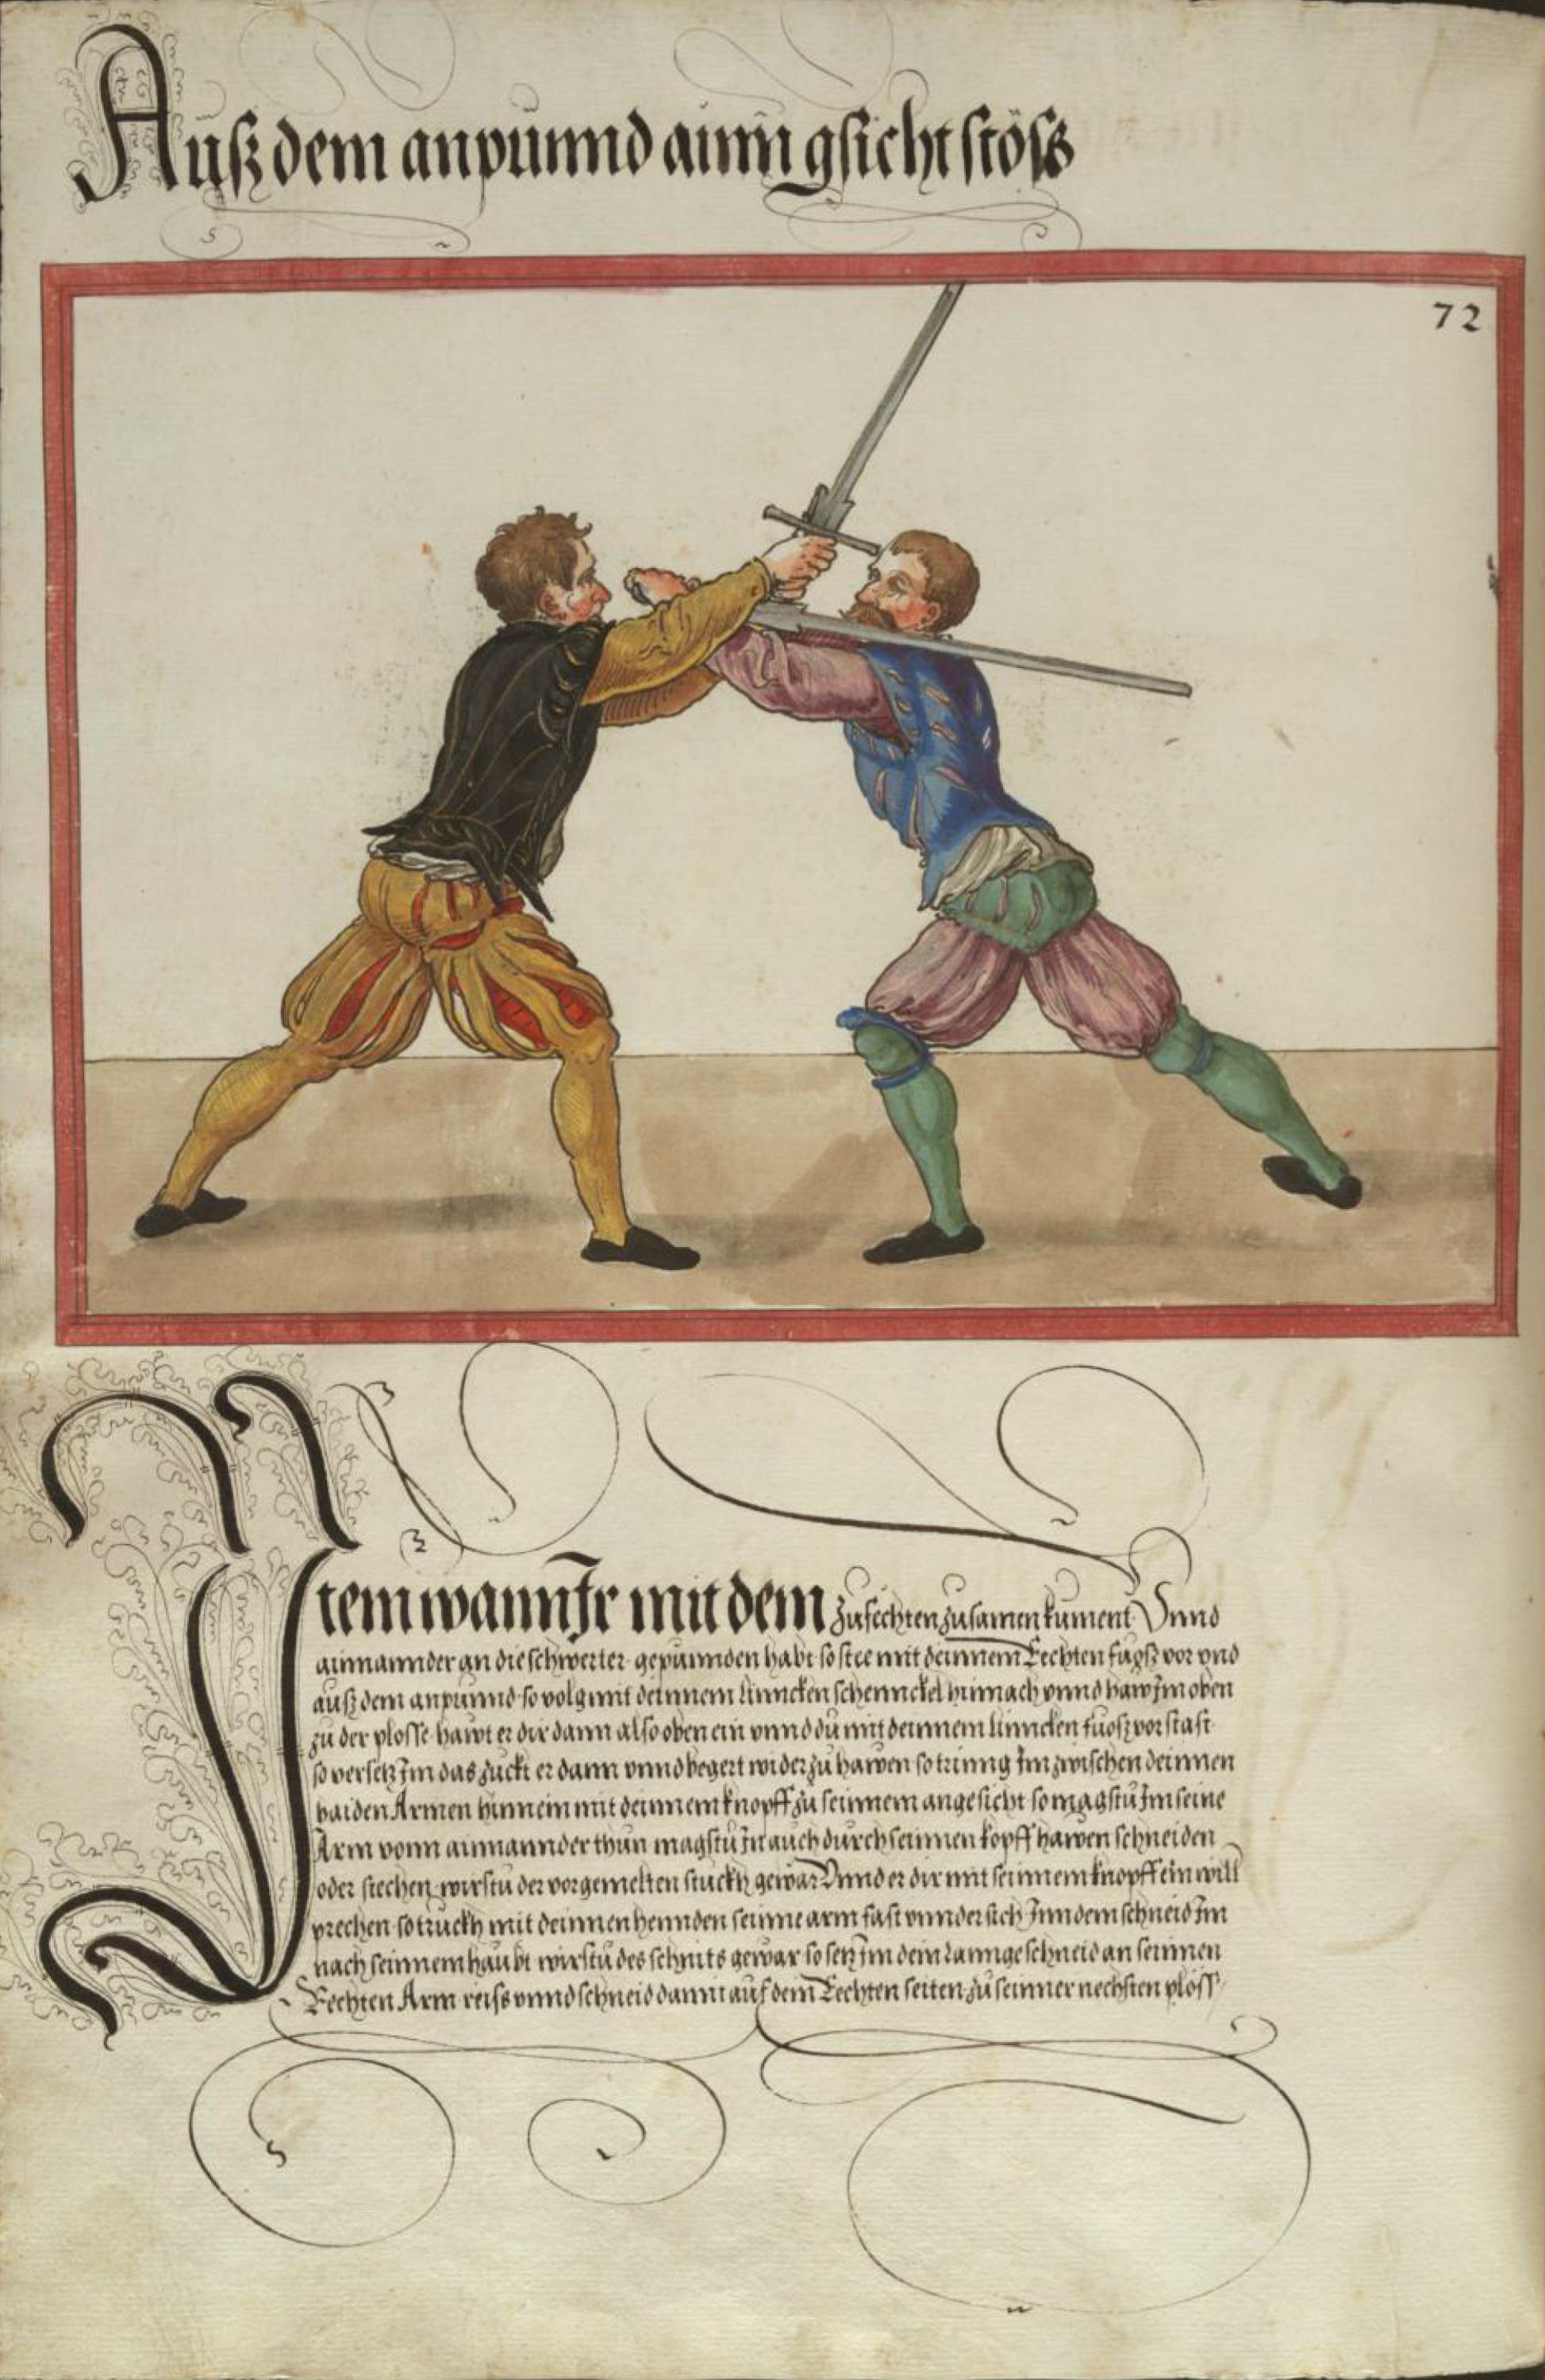 Auß dem anpunnd ainn gsicht stöss
72
Item wann Ir mit dem zufechten zusamen kument Vnnd
ainnannder an die schwerter gepunnden habt so stee mit deinnem Rechten fuosz vor vnd
ausz dem anpunnd so volg mit deinnem linncken schennckel hinnach vnnd haw Im oben
zu der plosse hawt er dir dann also oben ein vnnd du mit deinnem linncken fuosz vor stast
so versetz Im das zuckt er dann vnnd begert wider zu hawen so trinng Im zwischen deinnen
baiden Armen hinnein mit deinnem knopff zu seinnem angesicht so magstu Im seine
Arm vonn ainnannder thun magstu In auch durch seinnen kopff hawen schneiden
oder stechen wirstu der vorgemelten stuckh gewar Vnnd er dir mit seinnem knopff ein will
prechen so truckh mit deinnen hennden seinne arm fast vnndersich Inn dem schneid Im
nach seinnem haubt wirstu des schnits gewar so setz Im dein lannge schneid an seinnen
Rechten Arm reiss vnnd schneid damit auf dein Rechten seiten zu seinner nechsten plöss